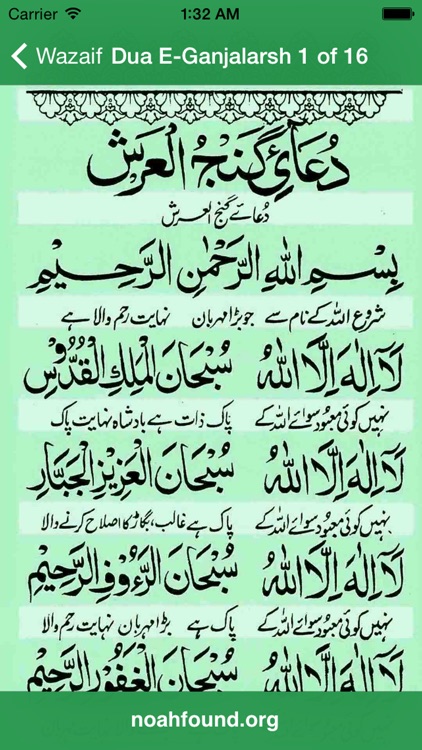 Carrier 1:32 AM
Wazaif Dua E-Ganjalarsh 1 of 16
دُعَائِ گَنْجُ الْعَرَش
دُعائے گنج العرش
بِسْمِ اللهِ الرَّحْمٰنِ الرَّحِيْمِ
شروع اللہ کے نام سے جو بڑا مہربان نہایت رحم والا ہے
لَآ اِلٰهَ اِلَّا اللهُ سُبْحَانَ الْمَلِكِ الْقُدُّوْسِ
نہیں کوئی معبود سوائے اللہ کے پاک ذات ہے بادشاہ نہایت پاک
لَآ اِلٰهَ اِلَّا اللهُ سُبْحَانَ الْعَزِيْزِ الْجَبَّارِ
نہیں کوئی معبود سوائے اللہ کے پاک ہے غالب، بگاڑ کا اصلاح کرنے والا
لَآ اِلٰهَ اِلَّا اللهُ سُبْحَانَ الرَّءُوْفِ الرَّحِيْمِ
نہیں کوئی معبود سوائے اللہ کے پاک ہے بڑا مہربان نہایت رحم والا
لَآ اِلٰهَ اِلَّا اللهُ سُبْحَانَ الْغَفُوْرِ الرَّحِيْمِ
noahfound.org